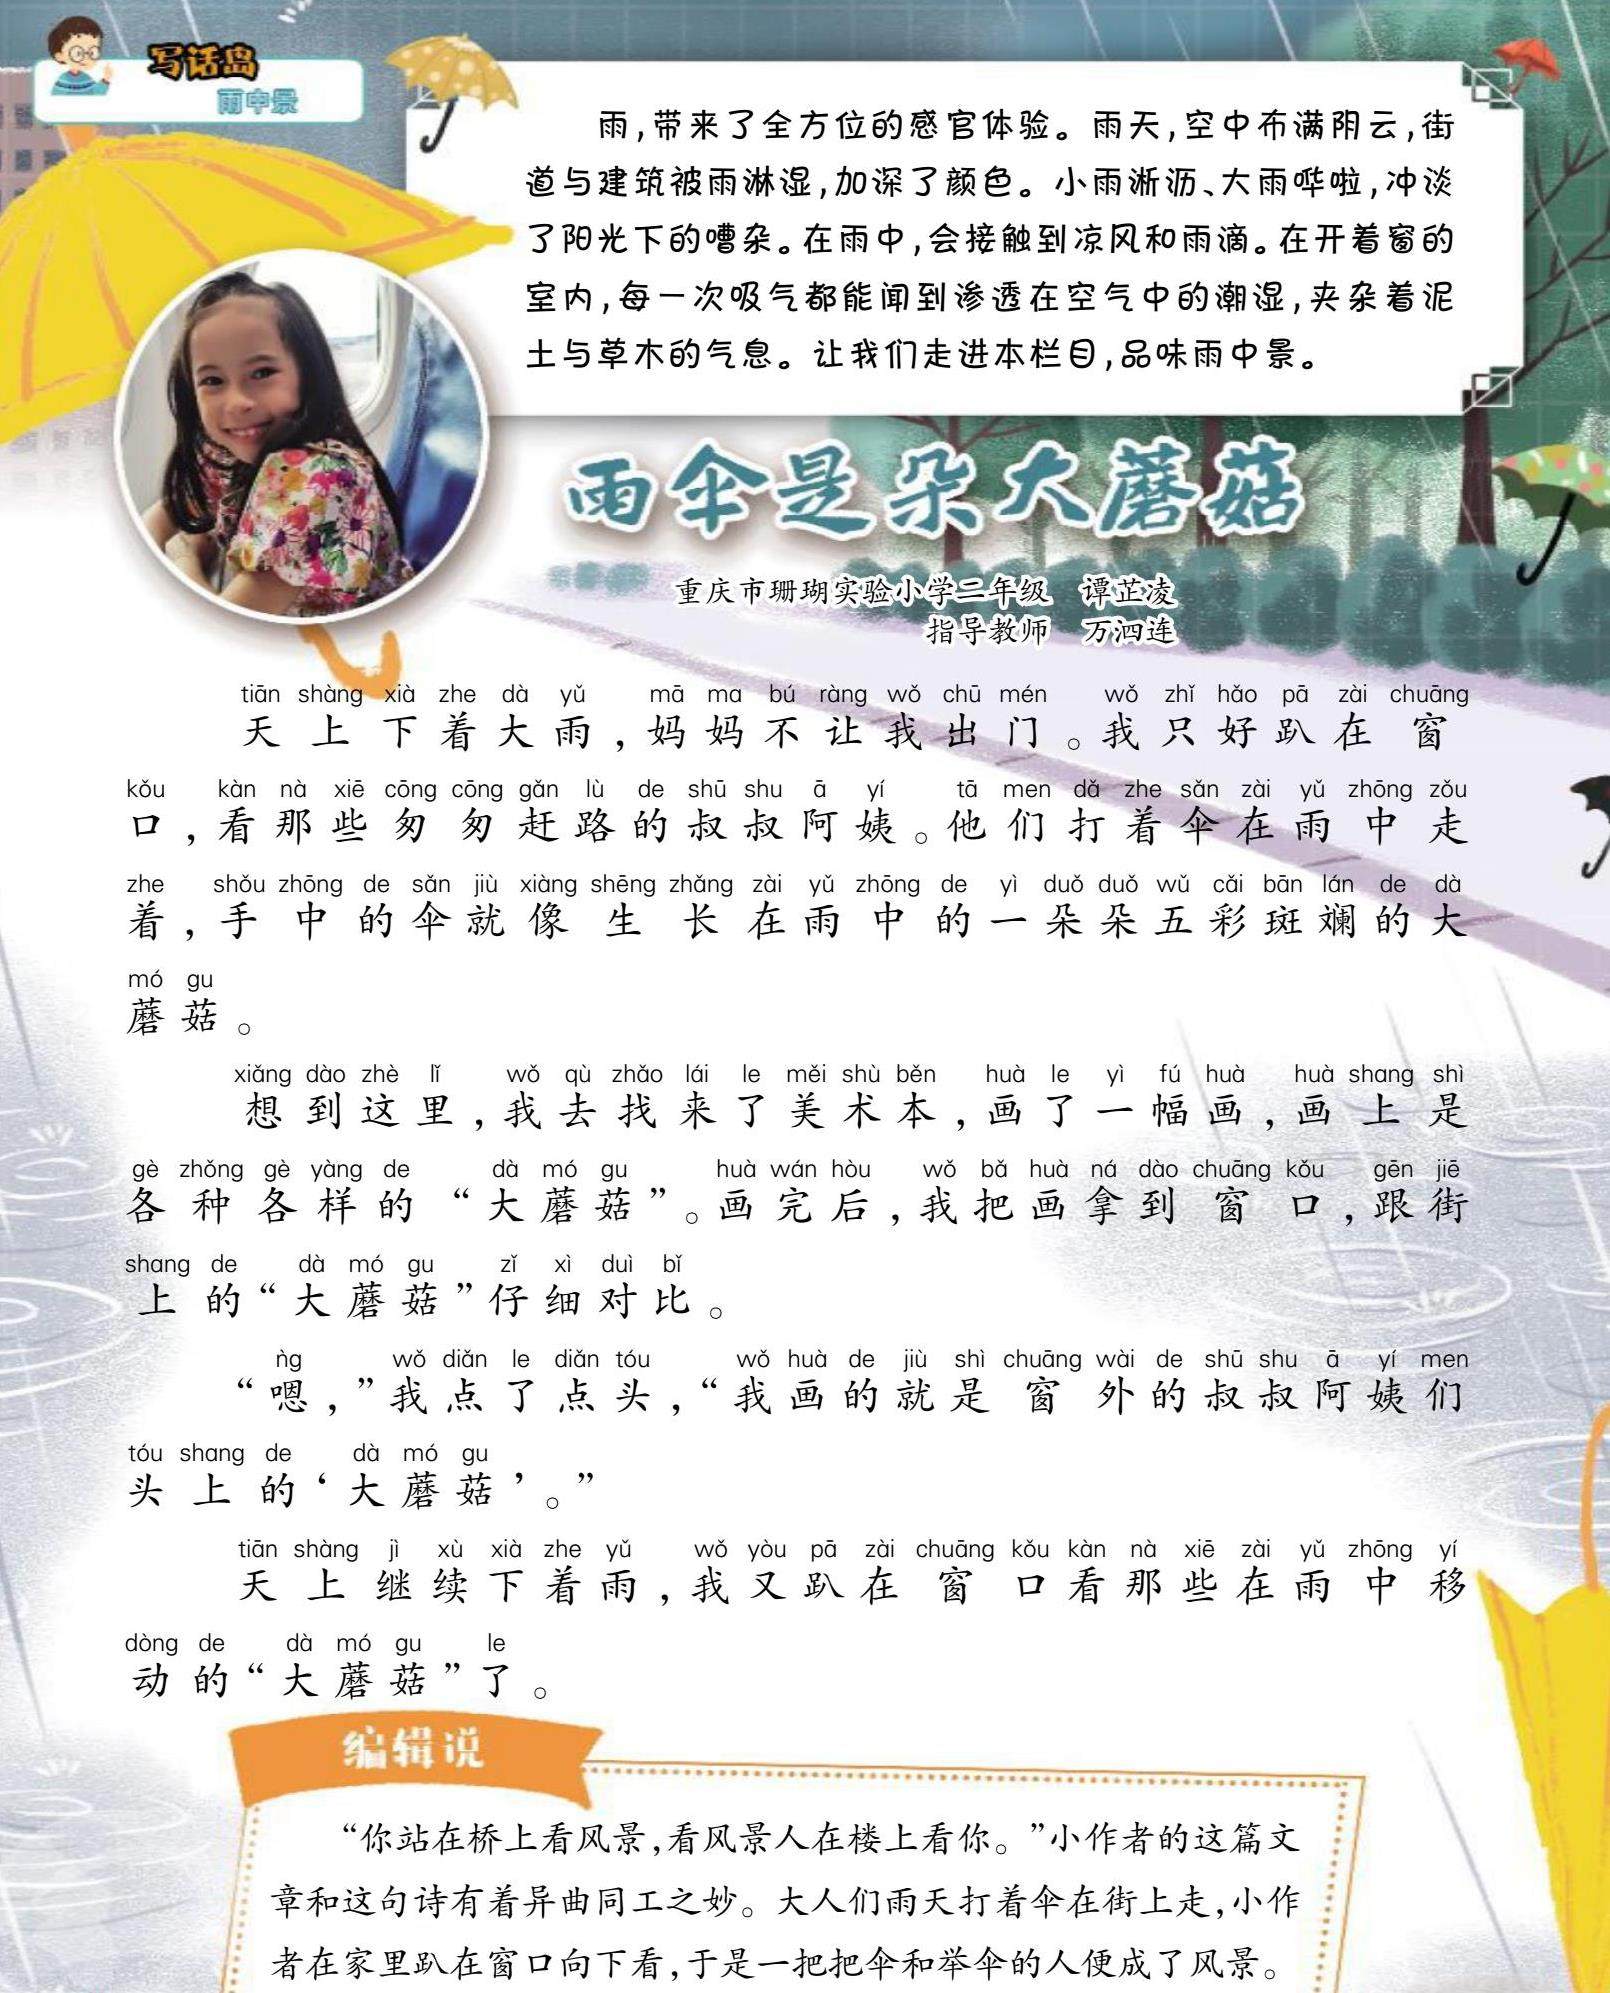 写话岛
雨中景
雨,带来了全方位的感官体验。雨天,空中布满阴云,街
道与建筑被雨淋湿,加深了颜色。小雨淅沥、大雨哗啦,冲淡
了阳光下的嘈杂。在雨中,会接触到凉风和雨滴。在开着窗的
室内,每一次吸气都能闻到渗透在空气中的潮湿,夹杂着泥
土与草木的气息。让我们走进本栏目,品味雨中景。
雨伞是朵大蘑菇
重庆市珊瑚实验小学二年级 谭芷凌
指导教师 万泗连
tiān shàng xià zhe dà yǔ mā ma bú ràng wǒ chū mén wǒ zhǐ hǎo pā zài chuāng
天上下着大雨,妈妈不让我出门。我只好趴在窗
kǒu kàn nà xiē cōng cōng gǎn lù de shū shu ā yí tā men dǎ zhe sǎn zài yǔ zhōng zǒu
口,看那些匆匆赶路的叔叔阿姨。他们打着伞在雨中走
zhe shǒu zhōng de sǎn jiù xiàng shēng zhǎng zài yǔ zhōng de yì duǒ duǒ wǔ cǎi bān lán de dà
着,手中的伞就像生长在雨中的一朵朵五彩斑斓的大
mó gu
蘑菇。
xiǎng dào zhè lǐ wǒ qù zhǎo lái le měi shù běn huà le yì fú huà huà shang shì
想到这里,我去找来了美术本,画了一幅画,画上是
gè zhǒng gè yàng de dà mó gu huà wán hòu wǒ bǎ huà ná dào chuāng kǒu gēn jiē
各种各样的“大蘑菇”。画完后,我把画拿到窗口,跟街
shang de dà mó gu zǐ xì duì bǐ
上的“大蘑菇”仔细对比。
ǹg wǒ diǎn le diǎn tóu wǒ huà de jiù shì chuāng wài de shū shu ā yí men
“嗯,”我点了点头,“我画的就是窗外的叔叔阿姨们
tóu shang de dà mó gu
头上的‘大蘑菇’。”
tiān shàng jì xù xià zhe yǔ wǒ yòu pā zài chuāng kǒu kàn nà xiē zài yǔ zhōng yí
天上继续下着雨,我又趴在窗口看那些在雨中移
dòng de dà mó gu le
动的“大蘑菇”了。
编辑说
“你站在桥上看风景,看风景人在楼上看你。”小作者的这篇文
章和这句诗有着异曲同工之妙。大人们雨天打着伞在街上走,小作
者在家里趴在窗口向下看,于是一把把伞和举伞的人便成了风景。